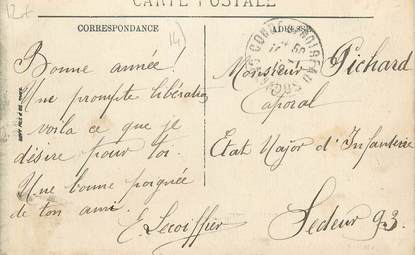 12€
CARTE POSTALE
CORRESPONDANCE
14
ADRESSE
Bonne année!
Une prompte libération
voila ce que je
désire pour toi.
Une bonne poignée
de ton ami.
E. Lecoiffier
Monsieur Pichard
Caporal
Etat Major d'Infanterie
Secteur 93